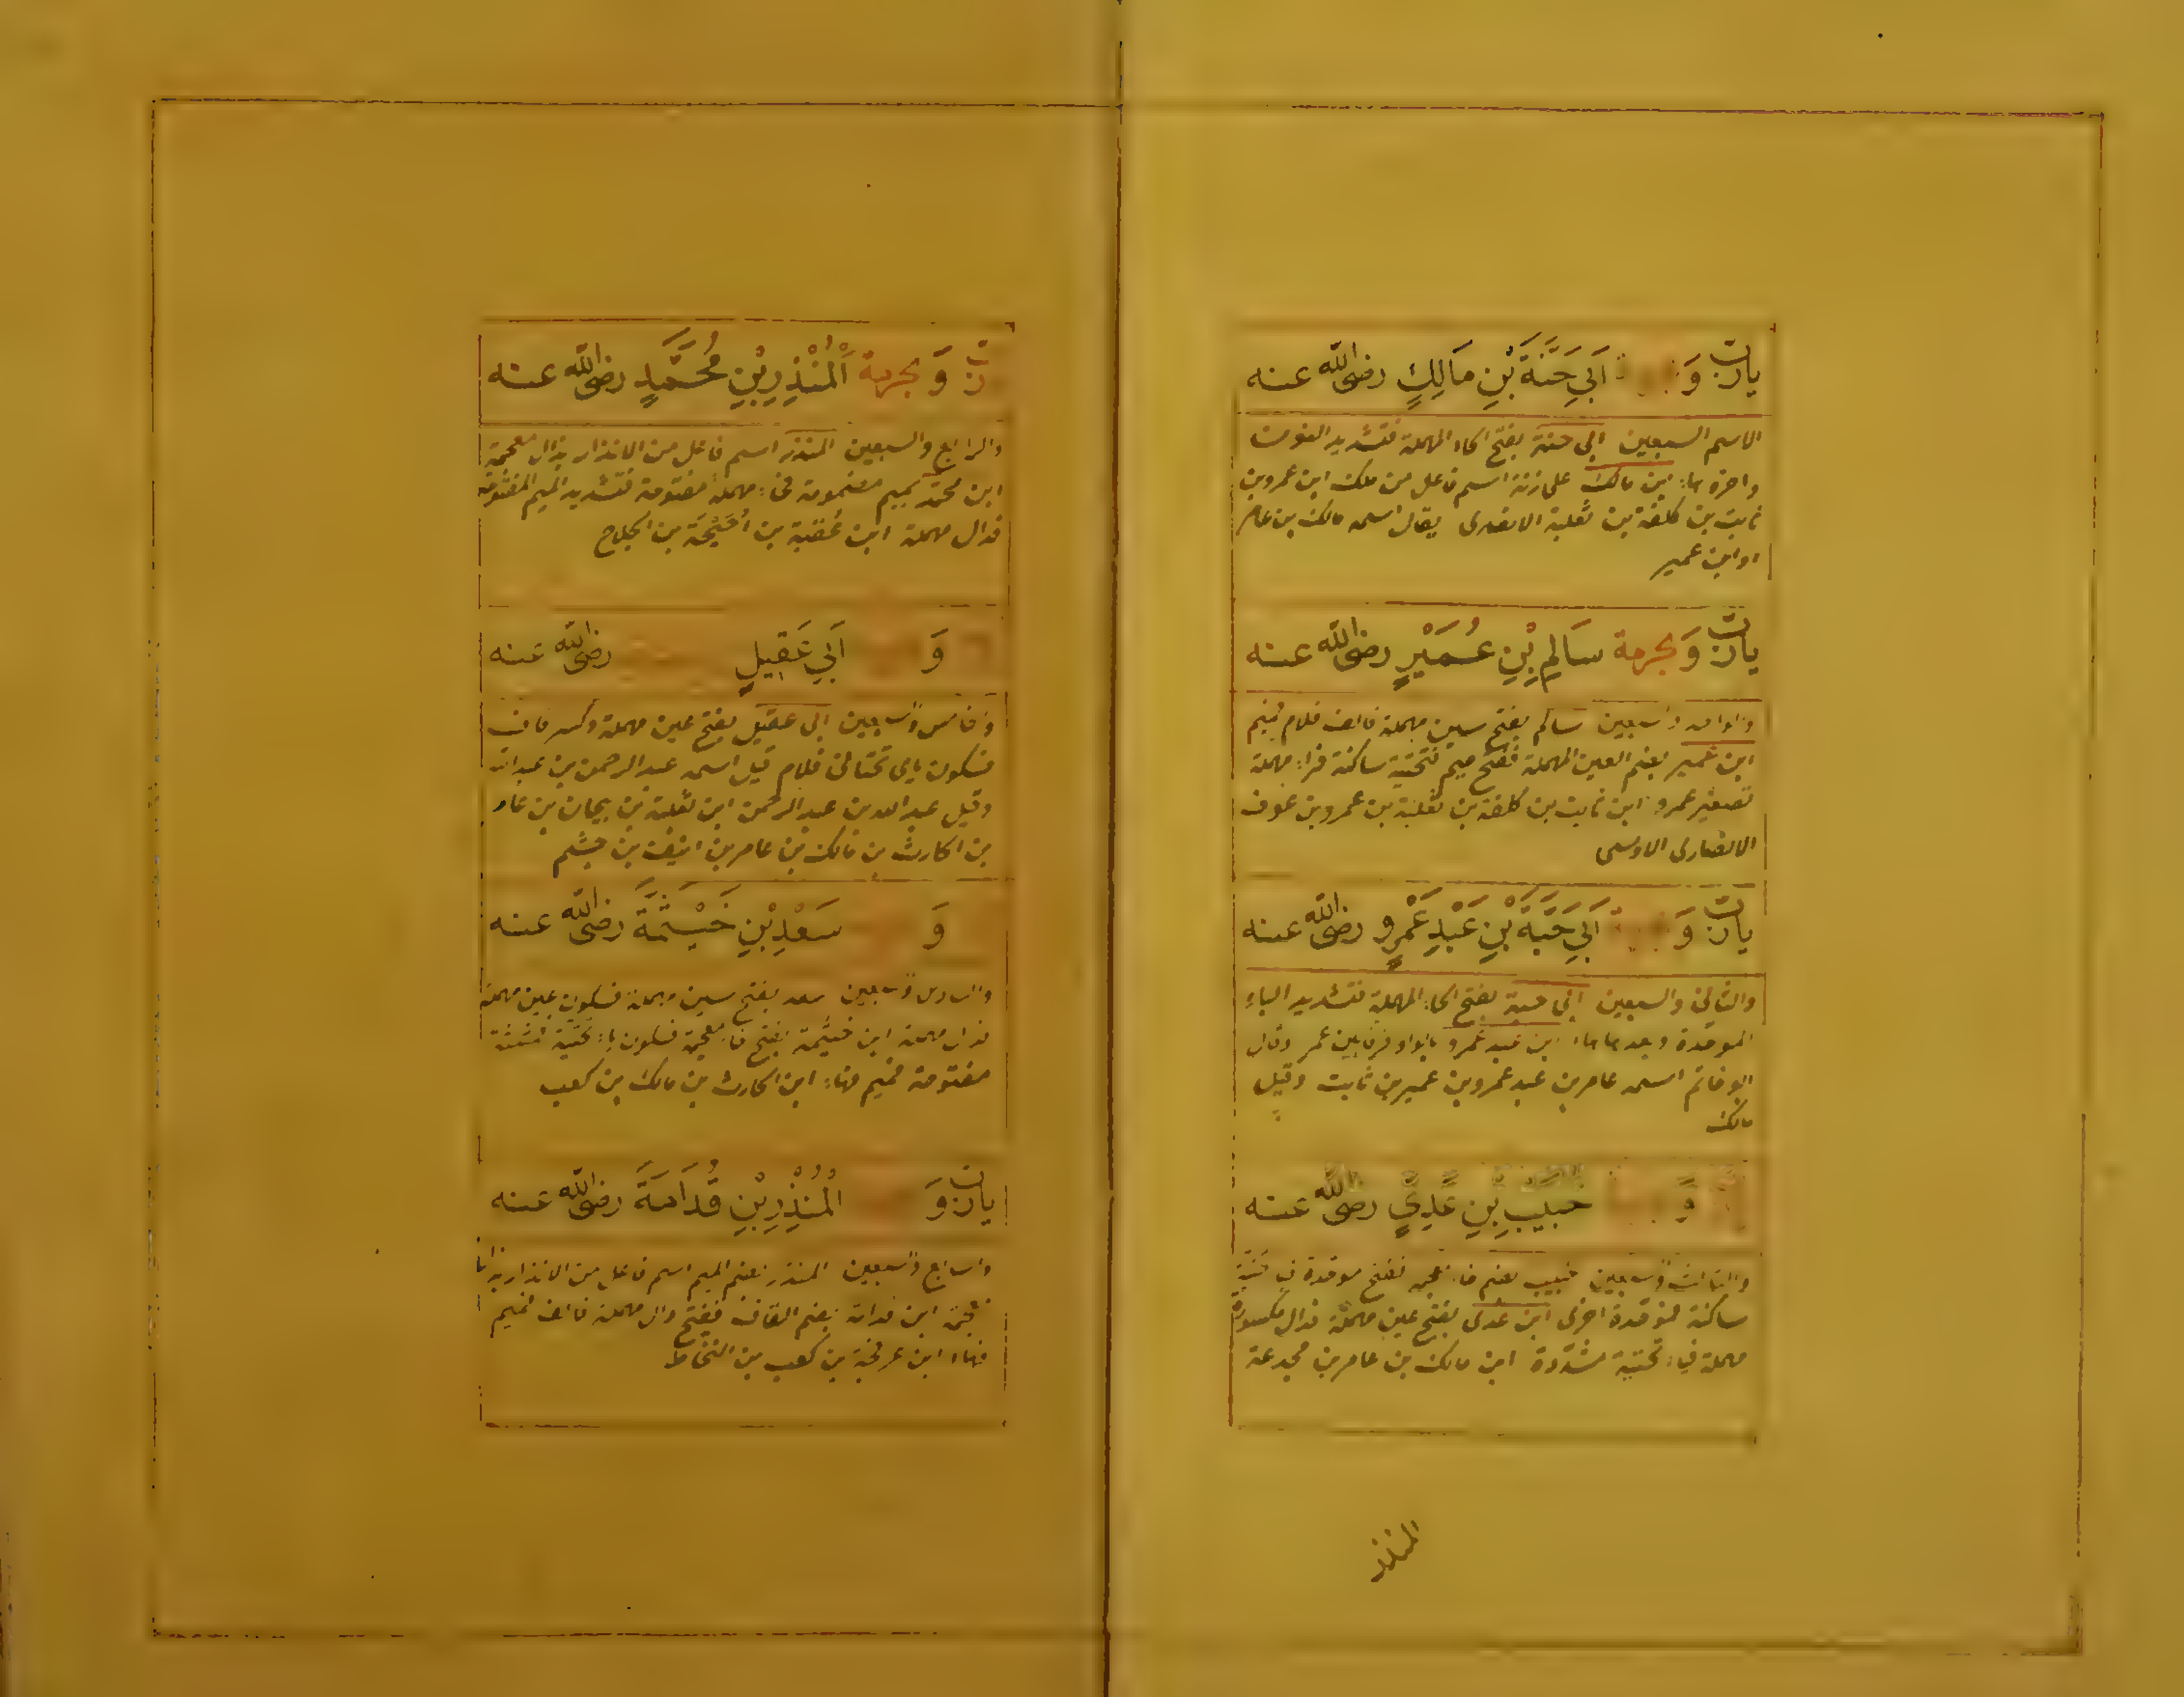 يارب وَ أَبِي حَنَّةَ بْنِ مَالِكٍ رضى الله عنه
الاسم السبعين ابى حنة بفتح الحاء المهملة فتشديد النون
واخره هاء ابن مالك على زنة اسم فاعل من ملك ابن عمرو بن
ثابت بن كلفة بن ثعلبة الانصارى يقال اسمه مالك بن عامر
او ابن عمير
يارب وَ بحرمة سَالِمِ بْنِ عُمَيْرٍ رضى الله عنه
والواحد والسبعين سالم بفتح سين مهملة فالف فلام فميم
ابن عمير بضم العين المهملة ففتح ميم فتحتية ساكنة فراء مهملة
تصغير عمرو ابن ثابت بن كلفة بن ثعلبة بن عمرو بن عوف
الانصارى الاوسى
يارب وَ أَبِي حَبَّةَ بْنِ عَبْدِ عَمْرٍو رضى الله عنه
والثانى والسبعين ابى حبة بفتح الحاء المهملة فتشديد الباء
الموحدة وبعدها هاء ابن عبد عمرو بالواو فرقا بين عمر وقال
ابو حاتم اسمه عامر بن عبد عمرو بن عمير بن ثابت وقيل
مالك
وَ خبيب بْنِ عَدِيٍّ رضى الله عنه
والثالث والسبعين خبيب بضم خاء معجمة ففتح موحدة فتحتية
ساكنة فموحدة اخرى ابن عدى بفتح عين مهملة فدال مكسورة
مهملة فياء تحتية مشددة ابن مالك بن عامر بن مجدعة
المنذر
وَ بحرمة اَلْمُنْذِرِ بْنِ مُحَمَّدٍ رضى الله عنه
والرابع والسبعين المنذر اسم فاعل من الانذار بذال معجمة
ابن محمد بميم مضمومة فحاء مهملة مفتوحة فتشديد الميم المفتوحة
فدال مهملة ابن عقبة بن أُحَيْحَة بن الجلاح
وَ أَبِي عَقِيلٍ رضى الله عنه
وخامس والسبعين ابى عقيل بفتح عين مهملة وكسر قاف
فسكون ياى تحتانى فلام قيل اسمه عبد الرحمن بن عبد الله
وقيل عبد الله بن عبد الرحمن ابن ثعلبة بن بيحان بن عامر
بن الحارث بن مالك بن عامر بن انيف بن جشم
وَ سَعْدِ بْنِ خَيْثَمَةَ رضى الله عنه
والسادس والسبعين سعد بفتح سين مهملة فسكون عين مهملة
فدال مهملة ابن خيثمة بفتح خاء معجمة فسكون ياء تحتية فمثلثة
مفتوحة فميم فهاء ابن الحارث بن مالك بن كعب
يارب وَ الْمُنْذِرِ بْنِ قُدَامَةَ رضى الله عنه
والسابع والسبعين المنذر بضم الميم اسم فاعل من الانذار بذال
معجمة ابن قدامة بضم القاف ففتح دال مهملة فالف فميم
فهاء ابن عرفجة بن كعب بن النحاط